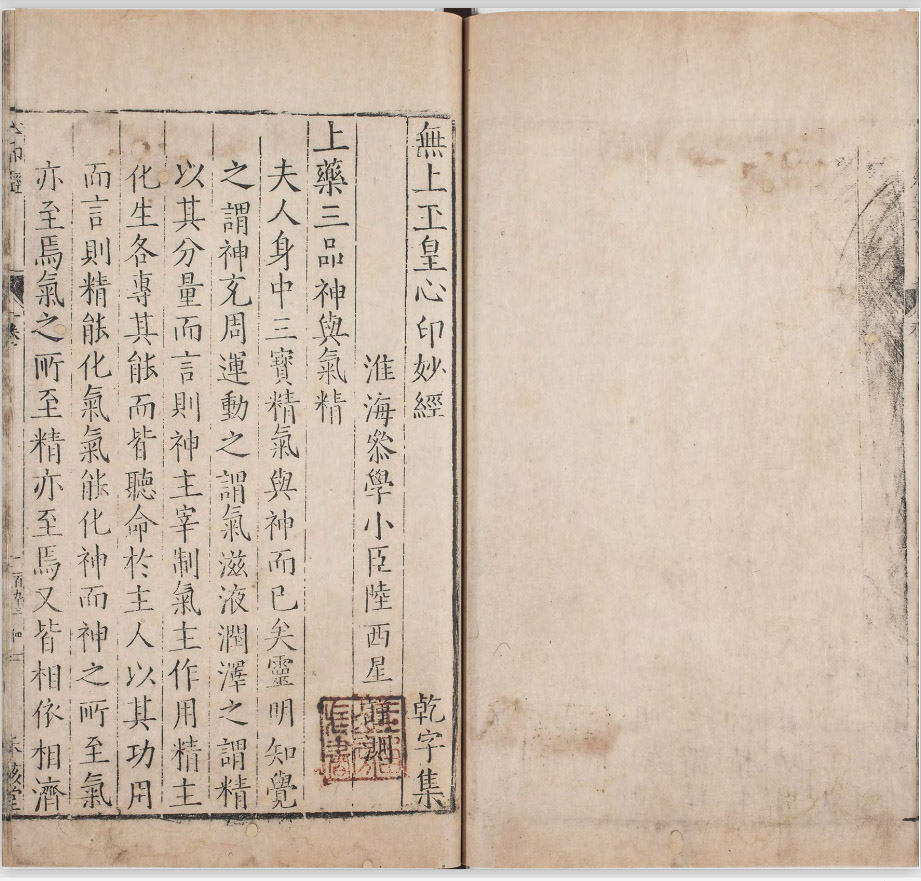 無上玊皇心印妙經 乾字集
淮海叅學小臣陸西星 測
上藥三品神與氣精
夫人身中三寳精氣與神而已矣靈明知覺
之謂神充周運動之謂氣滋液潤澤之謂精
以其分量而言則神主宰制氣主作用精主
化生各專其能而皆聽命於主人以其功用
而言則精能化氣氣能化神而神之所至氣
亦至焉氣之所至精亦至焉又皆相依相濟